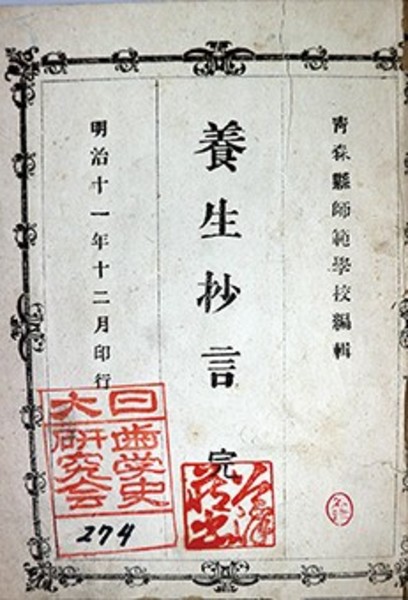 青森縣師範學校編輯
養生抄言 完
明治十一年十二月印行
日大
歯学史
研究会
274